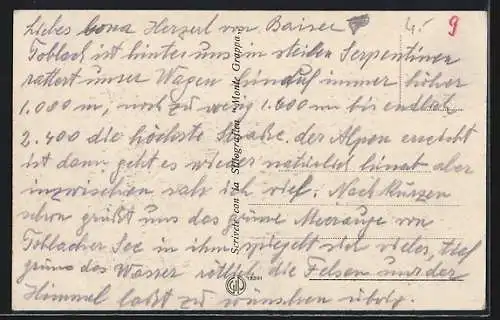 Liebes bona Herzerl von Baiser
4.- 9
Toblach ist hinter uns in steilen Serpentinen
rattert unser Wagen hinauf immer höher
1.000 m, noch zu wenig 1.600 m bis endlich
2.400 die höchste Straße der Alpen erreicht
ist dann geht es wieder natürlich hinab aber
inzwischen sah ich viel. Nach kurzen
schon grüßt uns das grüne Meerauge von
Toblacher See in ihm spiegelt sich vieles, tief
grün das Wasser rötlich die Felsen und der
Himmel läßt zu wünschen übrig.
Scrivete con la Stilografica "Monte Grappa"